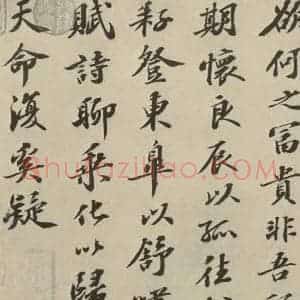 欲何之冨貴非吾
期懷良辰以孤往
耔登東皐以舒嘯
賦詩聊乘化以歸
天命復奚疑
shufaziliao.com